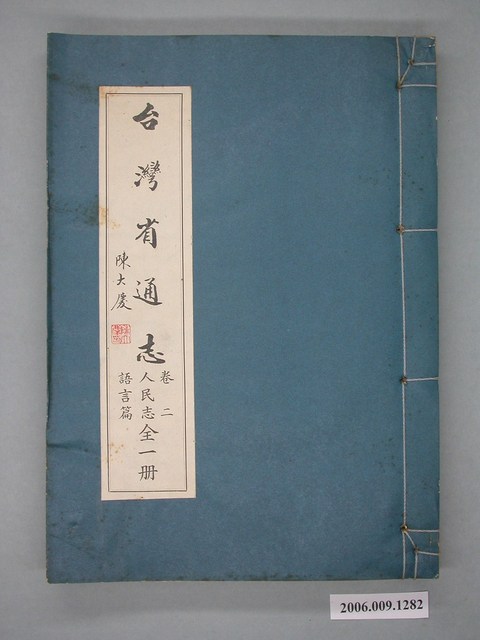 台灣省通志
陳大慶
卷二
人民志全一册
語言篇
2006.009.1282